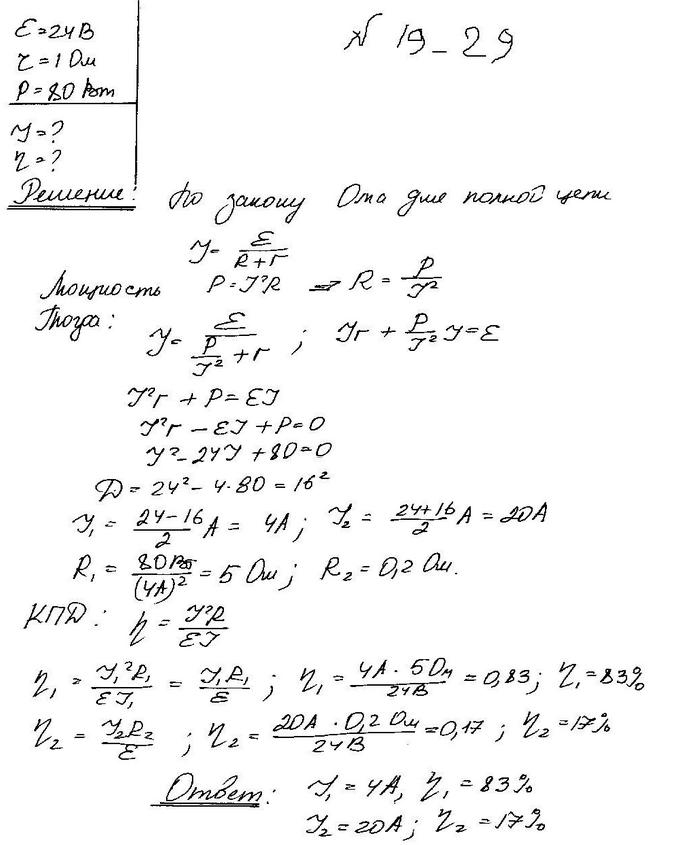 ℰ=24В
№ 19-29
r=1 Ом
P=80 Вт
J=?
η=?
Решение: По закону Ома для полной цепи
J = ℰ/(R+r)
Мощность P=J²R ⇒ R = P/J²
Тогда: J = ℰ/(P/J² + r) ; Jr + P/J² J = ℰ
J²r + P = ℰJ
J²r - ℰJ + P = 0
J² - 24J + 80 = 0
D = 24² - 4·80 = 16²
J₁ = (24-16)/2 А = 4А; J₂ = (24+16)/2 А = 20А
R₁ = 80Вт/(4А)² = 5 Ом; R₂ = 0,2 Ом.
КПД: η = J²R/ℰJ
η₁ = J₁²R₁/ℰJ₁ = J₁R₁/ℰ ; η₁ = 4А · 5Ом/24В = 0,83; η₁ = 83%
η₂ = J₂R₂/ℰ ; η₂ = 20А · 0,2 Ом/24В = 0,17 ; η₂ = 17%
Ответ: J₁ = 4А, η₁ = 83%
J₂ = 20А; η₂ = 17%